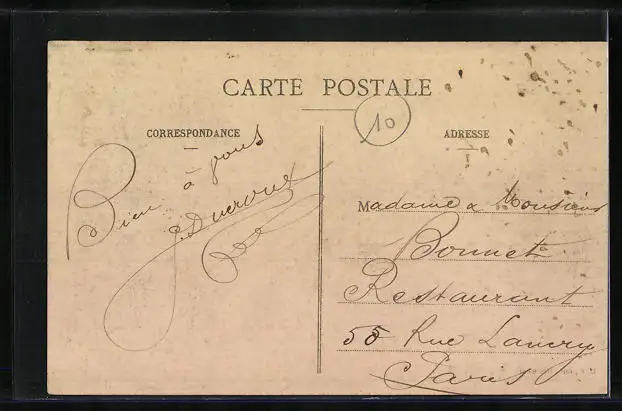 CARTE POSTALE
10
CORRESPONDANCE
ADRESSE
Bien à vous
J. Ducroux
Madame & Monsieur
Bonnet
Restaurant
55 Rue Lancry
Paris